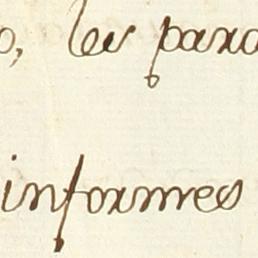 o, les para
informes